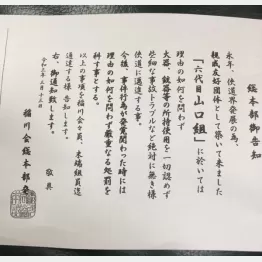 総本部御告知
永年、侠道界発展の為、
親戚友好団体として築いて来ました
「六代目山口組」に於いては
理由の如何を問わず
火器、銃器等の所持使用を一切認めず
些細な事故トラブルなど絶対に無き様
侠道に邁進する事。
今後、事件行為が発覚関わった時には
理由の如何を問わず厳重なる処罰を
科す事とする。
以上の事項を稲川会々員、末端組員迄
通達する様 告知します。
右、御通知致します。
敬具
令和 年 月十三日
稲川会総本部発